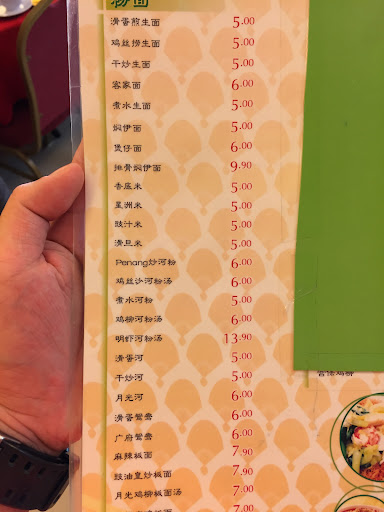 粉面
滑蛋煎生面 5.00
鸡丝捞生面 5.00
干炒生面 5.00
客家面 6.00
煮水生面 5.00
焖伊面 5.00
煲仔面 6.00
排骨焖伊面 9.90
香底米 5.00
星洲米 5.00
豉汁米 5.00
滑旦米 5.00
Penang炒河粉 6.00
鸡丝沙河粉汤 6.00
煮水河粉 5.00
鸡柳河粉汤 6.00
明虾河粉汤 13.90
滑蛋河 5.00
干炒河 5.00
月光河 6.00
滑蛋鸳鸯 6.00
广府鸳鸯 6.00
麻辣板面 7.90
豉油皇炒板面 7.90
月光鸡柳板面汤 7.00
7.00